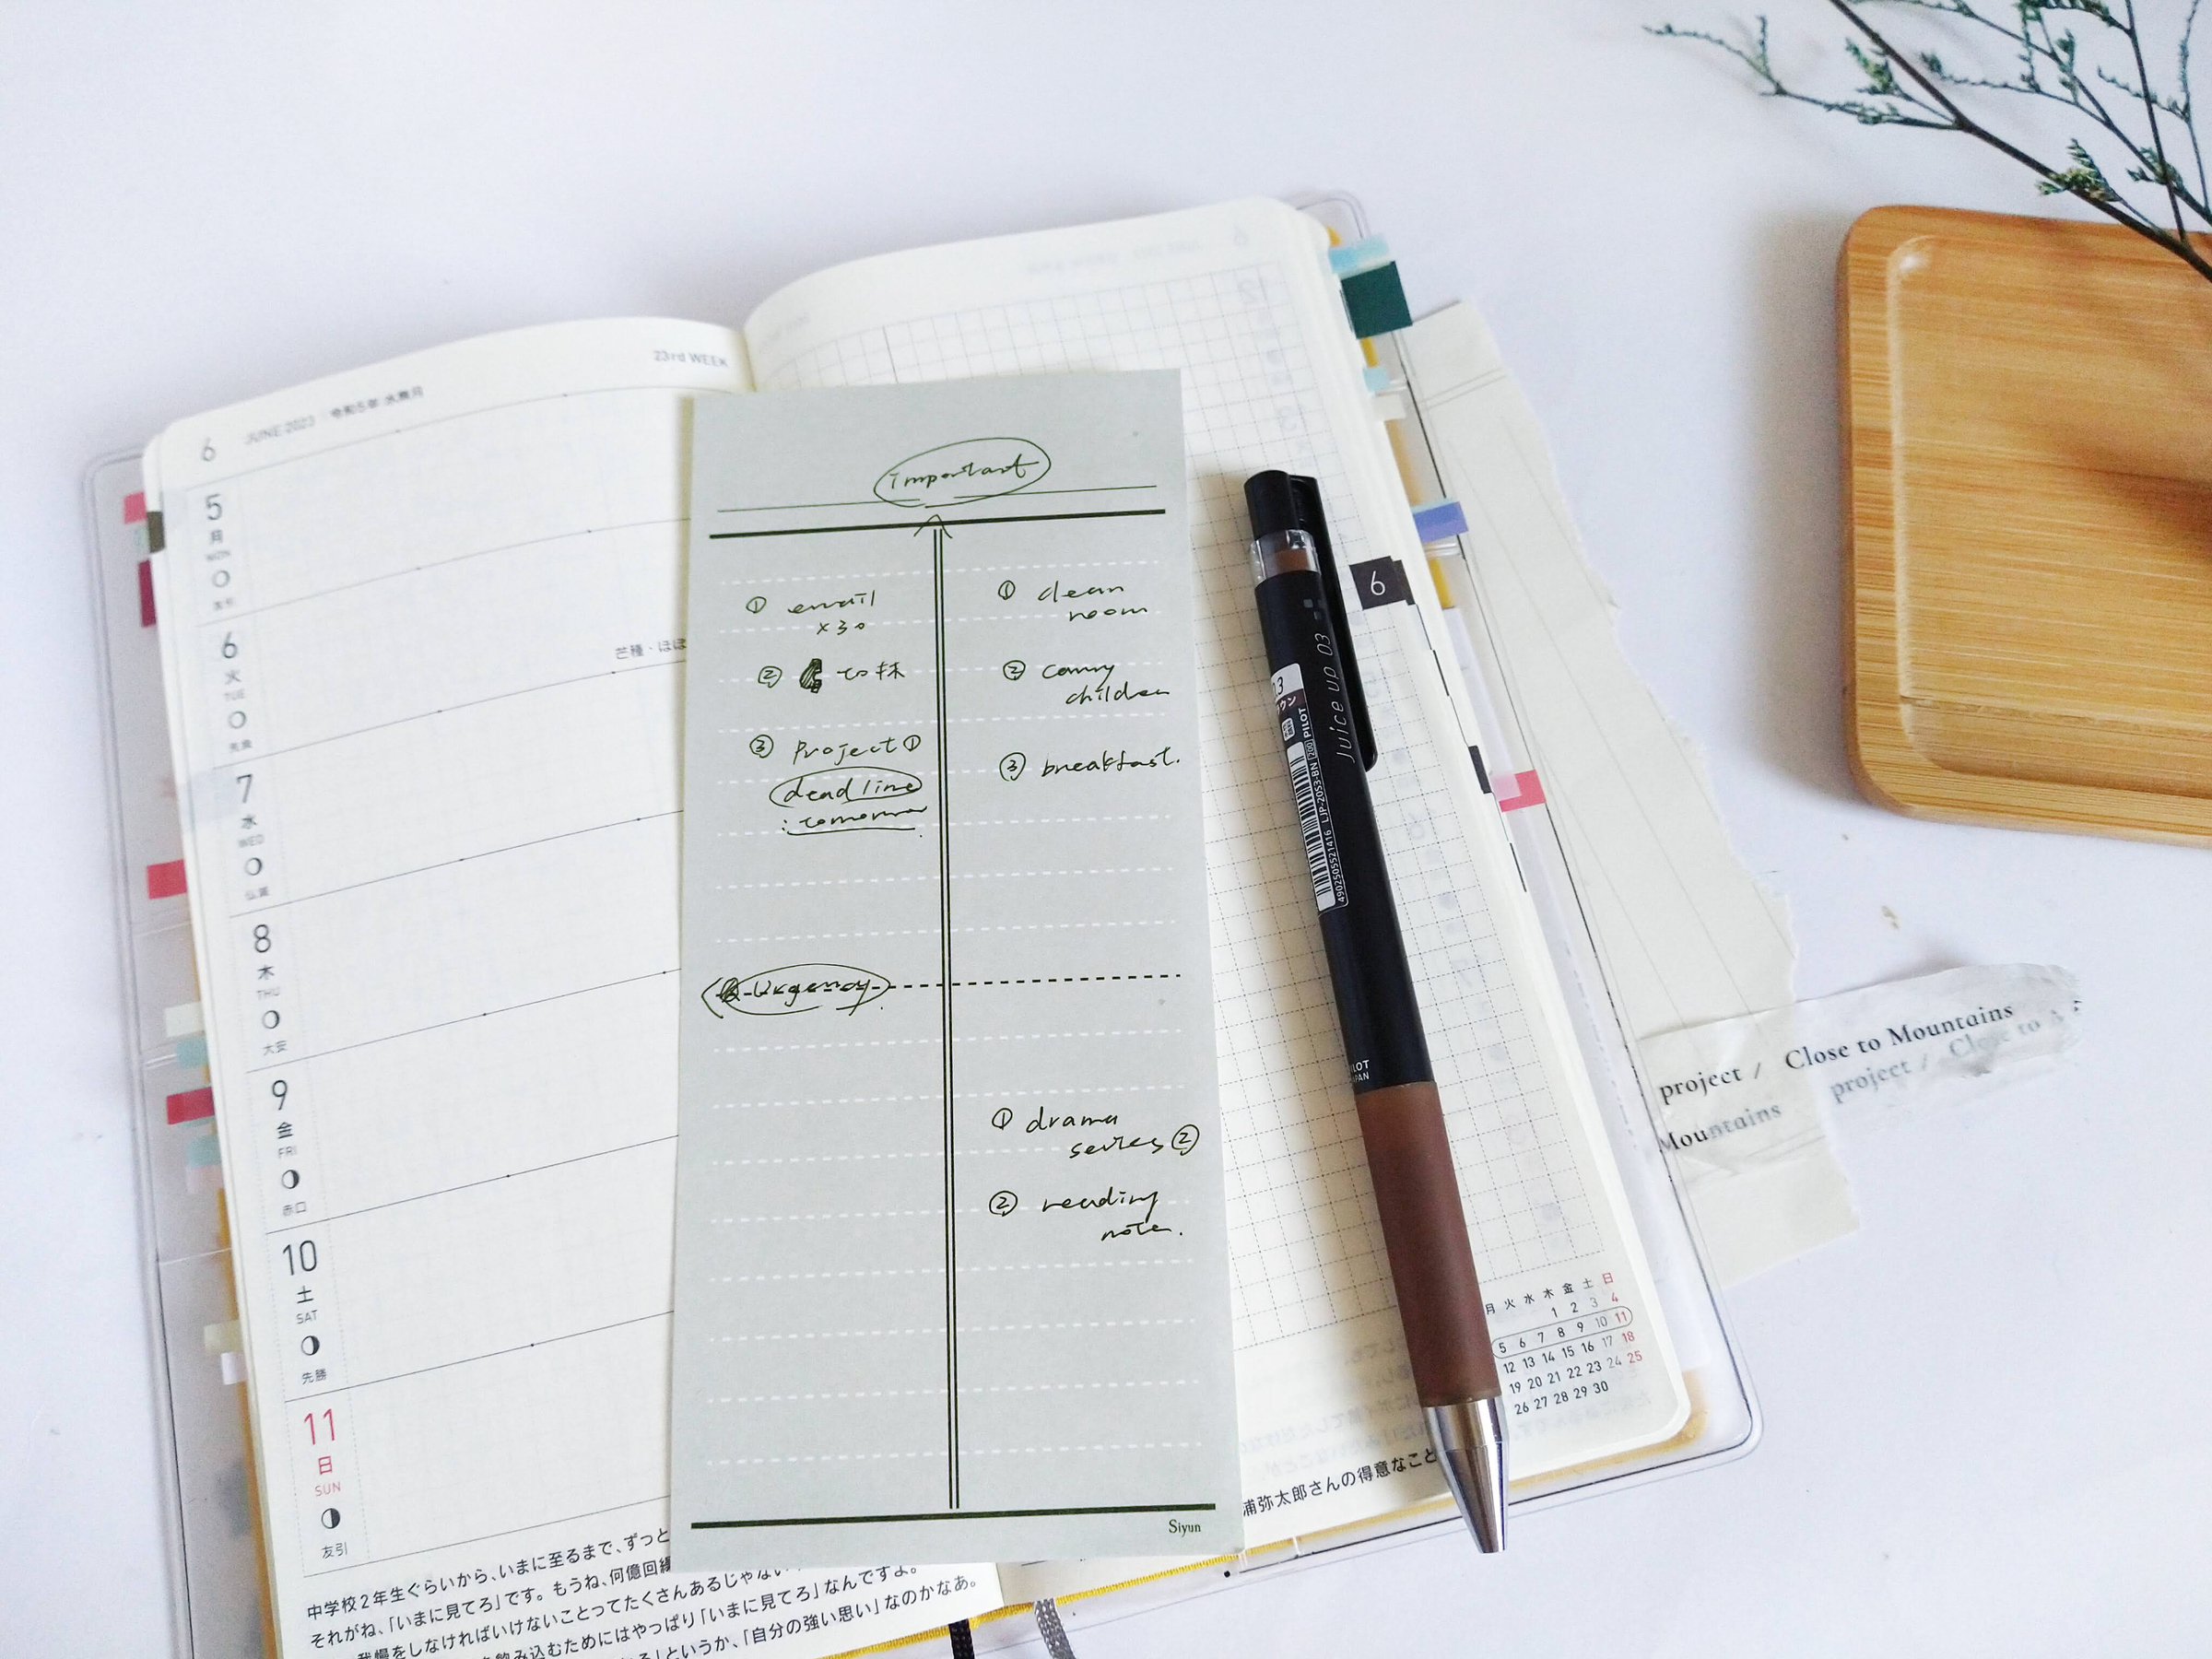 6 JUNE 2023 令和5年 水無月
23rd WEEK
5
月
MON
友引
6
火
TUE
先負
芒種・ほぼ
7
水
WED
仏滅
8
木
THU
大安
9
金
FRI
赤口
10
土
SAT
先勝
11
日
SUN
友引
中学校2年生ぐらいから、いまに至るまで、ずっと
それがね、「いまに見てろ」です。もうね、何億回
我慢をしなければいけないことってたくさんあるじゃない
飲み込むためにはやっぱり「いまに見てろ」なんですよ。
」というか、「自分の強い思い」なのかなあ。
important
① email
×30
②
③ Project①
deadline
: tomorrow
① clean
room
② carry
children
③ breakfast.
Urgency
① drama
series ②
② reading
note.
Siyun
Juice up 03
PILOT
LJP-20S3-BN
4902505521416
PILOT
JAPAN
6
月 火 水 木 金 土 日
1 2 3 4
5 6 7 8 9 10 11
12 13 14 15 16 17 18
19 20 21 22 23 24 25
26 27 28 29 30
浦弥太郎さんの得意なこと
project / Close to Mountains
project / Close to
Mountains